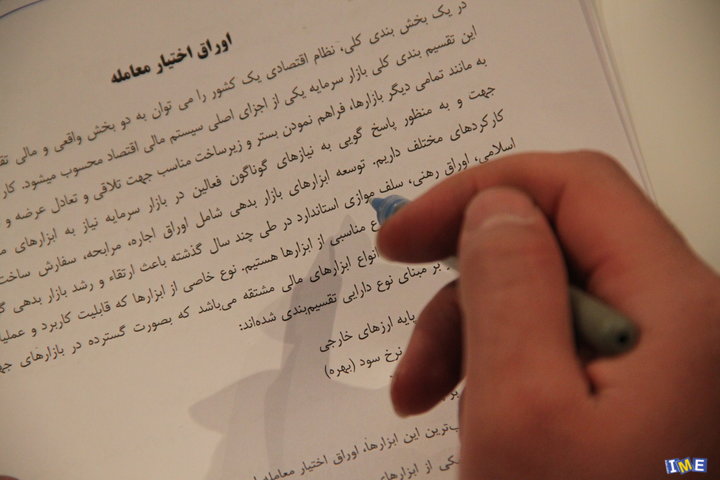 اوراق اختیار معامله
در یک بخش بندی کلی، نظام اقتصادی یک کشور را می توان به دو بخش واقعی و مالی
این تقسیم بندی کلی بازار سرمایه یکی از اجزای اصلی سیستم مالی اقتصاد محسوب میشود. کار
به مانند تمامی دیگر بازارها، فراهم نمودن بستر و زیرساخت مناسب جهت تلاقی و تعادل عرضه و
جهت و به منظور پاسخ گویی به نیازهای گوناگون فعالین در بازار سرمایه نیاز به ابزارهای
کارکردهای مختلف داریم. توسعه ابزارهای بازار بدهی شامل اوراق اجاره، مرابحه، سفارش ساخت
اسلامی، اوراق رهنی، سلف موازی استاندارد در طی چند سال گذشته باعث ارتقاء و رشد بازار بدهی
مناسبی از ابزارها هستیم. نوع خاصی از ابزارها که قابلیت کاربرد و
انواع ابزارهای مالی مشتقه می‌باشد که بصورت گسترده در بازارهای
بر مبنای نوع دارایی تقسیم‌بندی شده‌اند:
پایه ارزهای خارجی
نرخ سود (بهره)
ترین این ابزارها، اوراق اختیار معامله
یکی از ابزارهای
IME